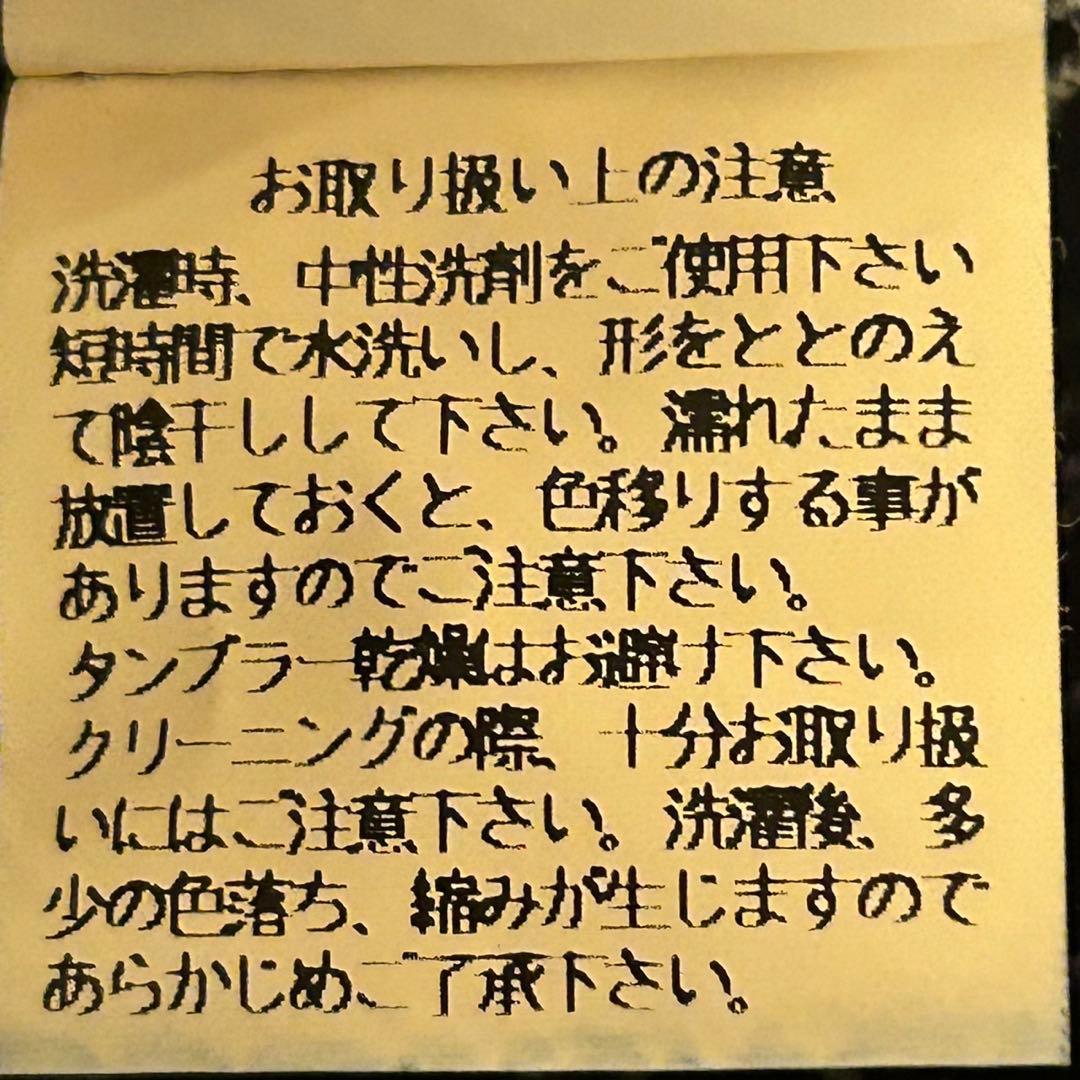 お取り扱い上の注意
洗濯時、中性洗剤をご使用下さい
短時間で水洗いし、形をととのえ
て陰干しして下さい。濡れたまま
放置しておくと、色移りする事が
ありますのでご注意下さい。
タンブラー乾燥はお避け下さい。
クリーニングの際、十分お取り扱
いにはご注意下さい。洗濯後、多
少の色落ち、縮みが生じますので
あらかじめご了承下さい。